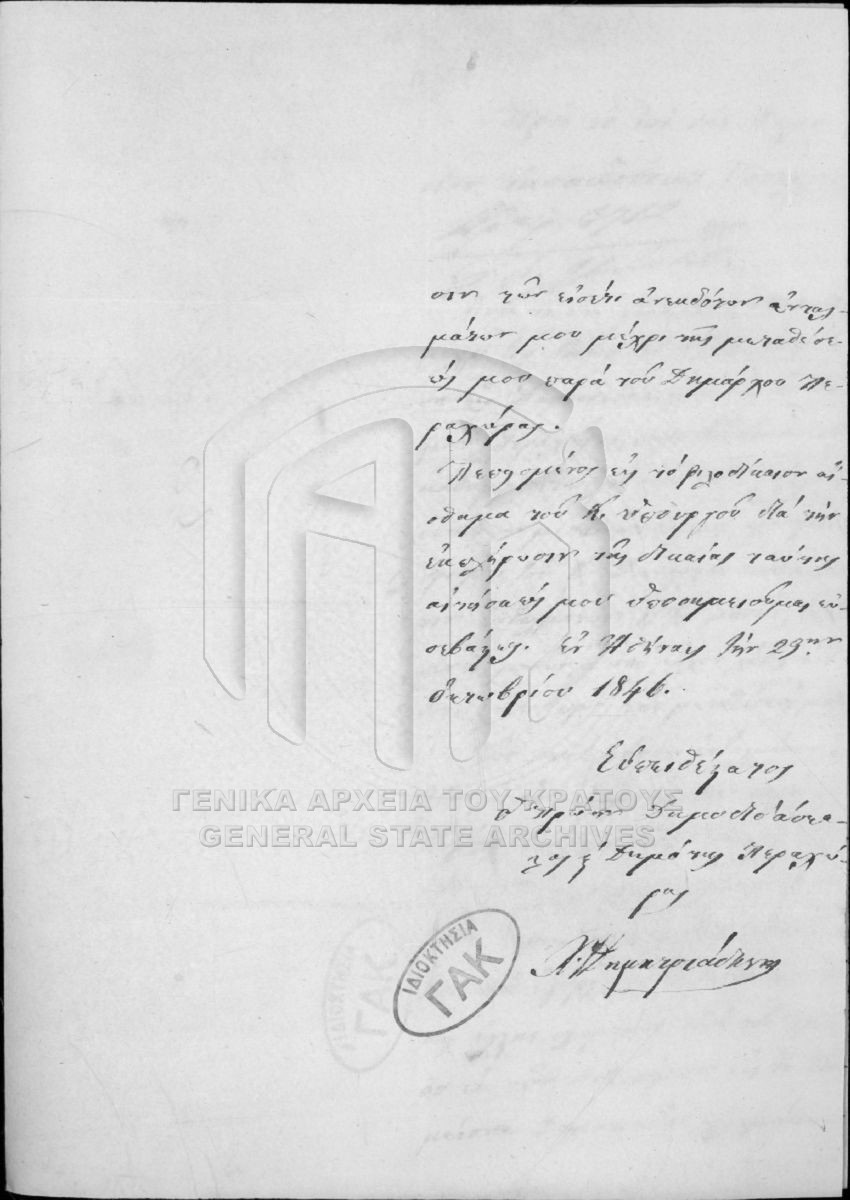 σιν τῶν εἰσέτι ἀνεκδότων ἐνταλ-
μάτων μου μέχρι τῆς μεταθέσε-
ώς μου παρὰ τοῦ Δημάρχου Πε-
ραχώρας.
Πεπεισμένος εἰς τὸ φιλοδίκαιον αἴ-
σθημα τοῦ Κ. Ὑπουργοῦ διὰ τὴν
ἐκπλήρωσιν τῆς δικαίας ταύτης
αἰτήσεώς μου ὑποσημειοῦμαι εὐ-
σεβάστως. Ἐν Ἀθήναις τὴν 29ην
Ὀκτωβρίου 1846.
Εὐπειθέστατος
ὁ πρώην Δημοδιδάσκα-
λος Δημότης Περαχώ-
ρας
Χ. Δημητριάδης
ΓΕΝΙΚΑ ΑΡΧΕΙΑ ΤΟΥ ΚΡΑΤΟΥΣ
GENERAL STATE ARCHIVES
ΙΔΙΟΚΤΗΣΙΑ
ΓΑΚ